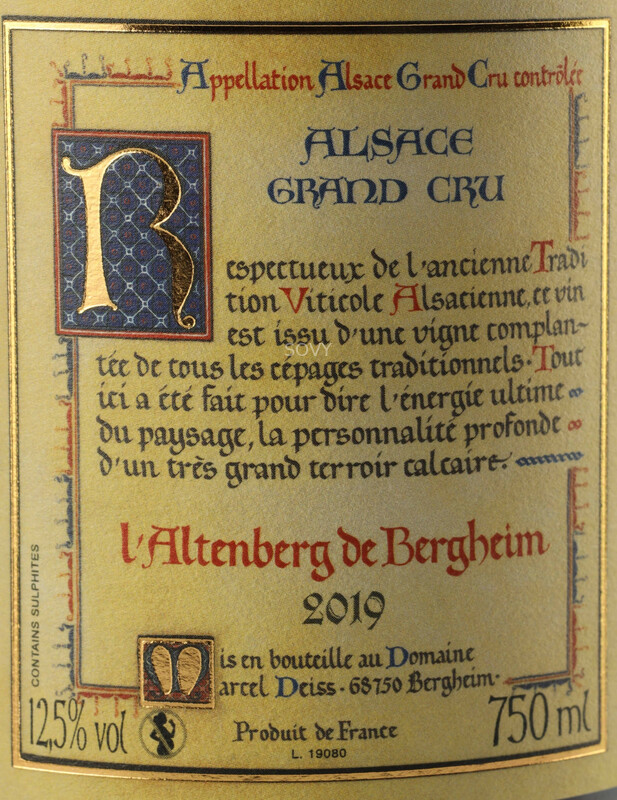 Appellation Alsace Grand Cru contrôlée
ALSACE
GRAND CRU
Respectueux de l'ancienne Tradi
tion Viticole Alsacienne, ce vin
est issu d'une vigne complan-
tée de tous les cépages traditionnels. Tout
ici a été fait pour dire l'énergie ultime
du paysage, la personnalité profonde
d'un très grand terroir calcaire.
SOVY
l'Altenberg de Bergheim
2019
Mis en bouteille au Domaine
Marcel Deiss - 68750 Bergheim.
CONTAINS SULPHITES
12,5% vol
Produit de France
750 ml
L. 19080